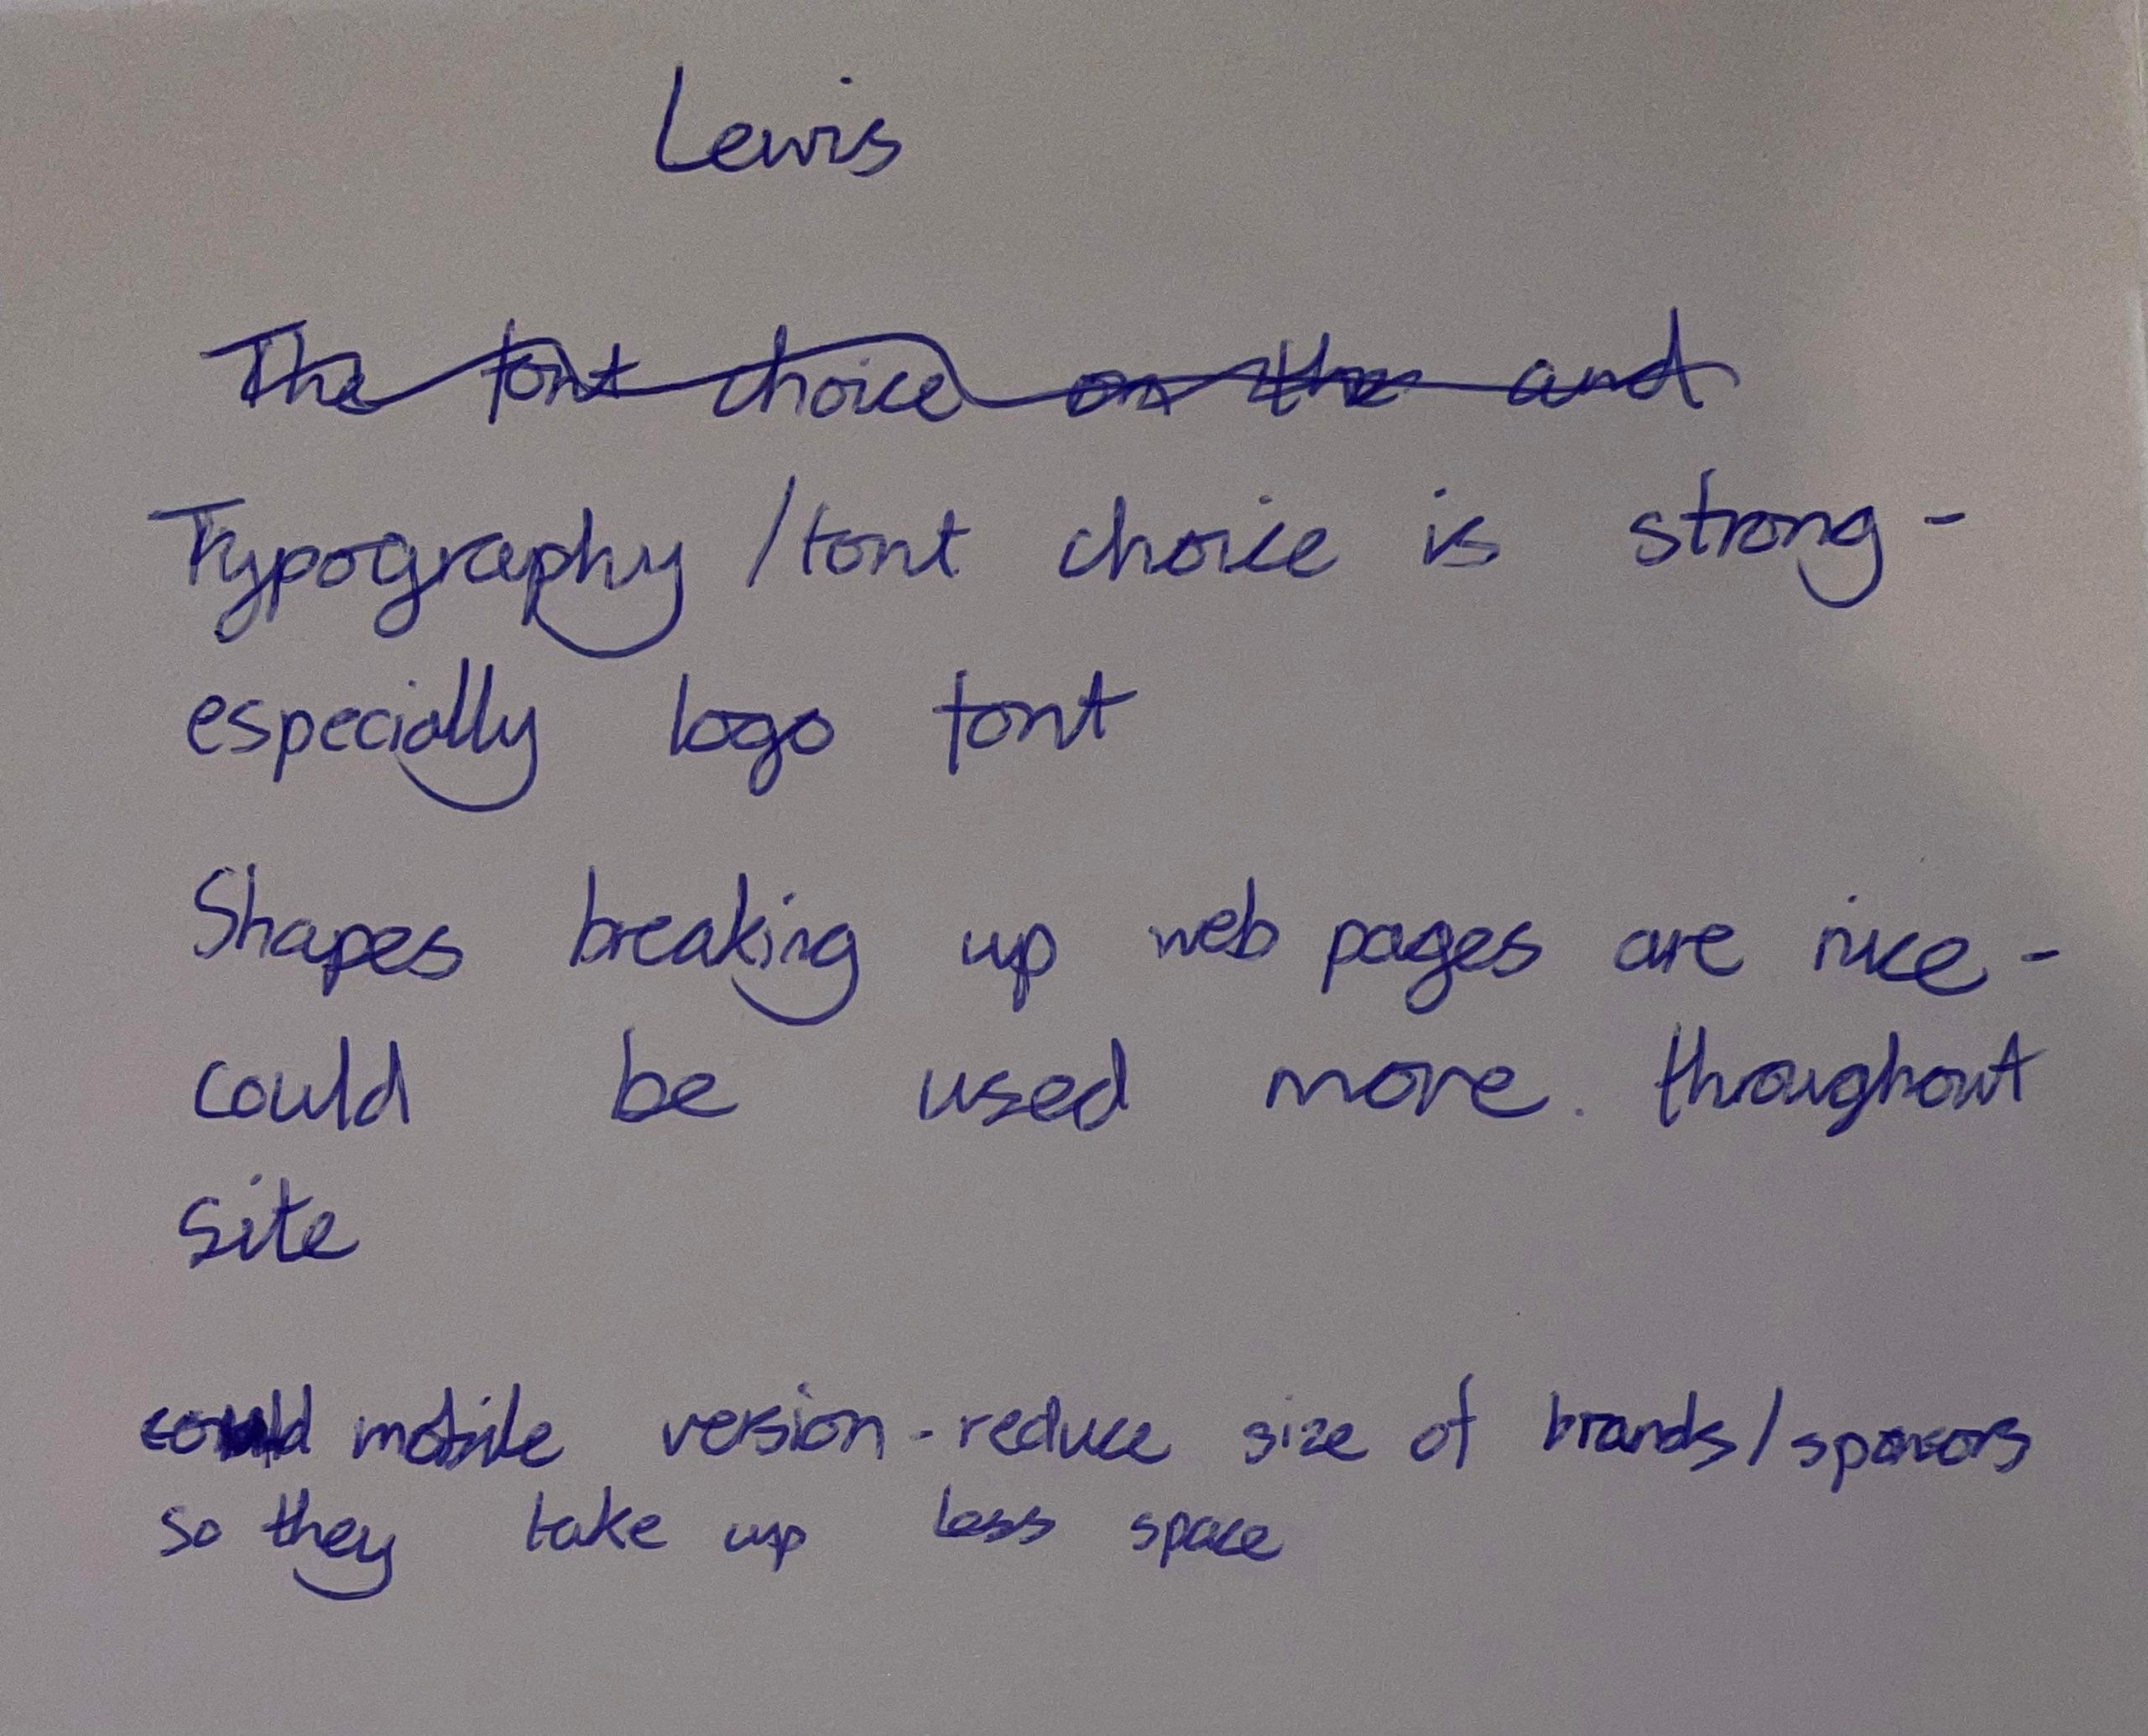 Lewis
The font choice on the and
Typography /font choice is strong -
especially logo font
Shapes breaking up web pages are nice -
could be used more. throughout
site
could mobile version - reduce size of brands/sponsors
so they take up less space